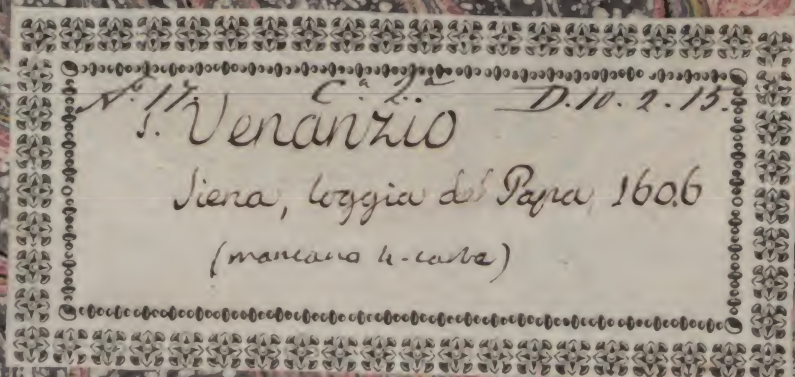 N.º 17. C.ª 2.ª D. 10. 2. 15.
S. Venanzio
Siena, loggia del Papa, 1606
(mancano 4 carte)